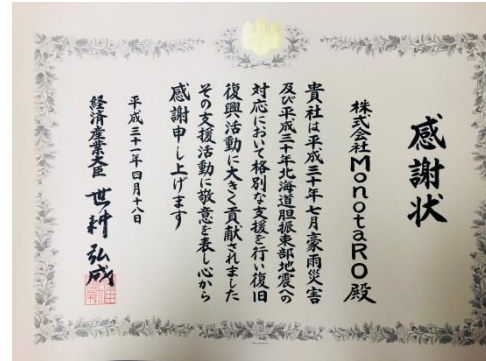 感謝状
株式会社MonotaRO殿
貴社は平成三十年七月豪雨災害
及び平成三十年北海道胆振東部地震への
対応において格別な支援を行い復旧
復興活動に大きく貢献されました
その支援活動に敬意を表し心から
感謝申し上げます
平成三十一年四月十八日
経済産業大臣 世耕弘成